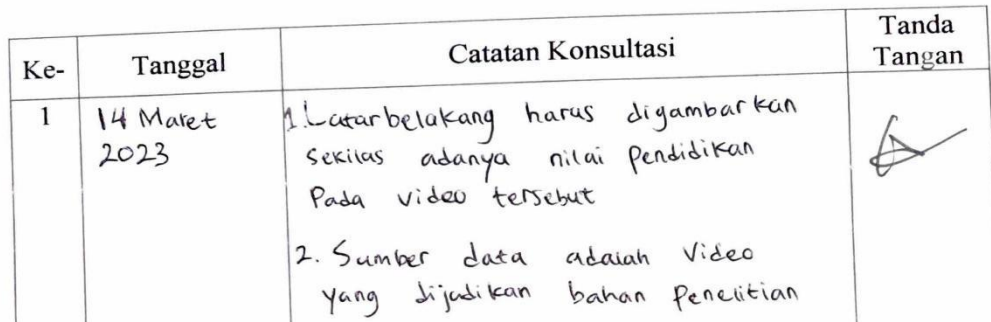 Ke- Tanggal Catatan Konsultasi Tanda Tangan
1 14 Maret 2023
1. Latarbelakang harus digambarkan
sekilas adanya nilai pendidikan
Pada video tersebut
2. Sumber data adalah Video
yang dijadikan bahan Penelitian